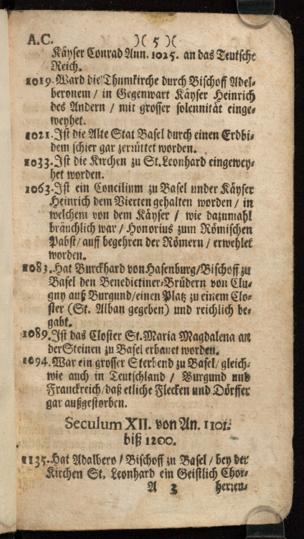 A.C. )( 5 )(
Käyser Conrad Ann. 1025. an das Teutsche
Reich.
1019. Ward die Thumkirche durch Bischoff Adel-
beronem / in Gegenwart Käyser Heinrich
des Andern / mit grosser solennität einge-
weyhet.
1021. Ist die Alte Stat Basel durch einen Erdbi-
dem schier gar zerrüttet worden.
1033. Ist die Kirchen zu St. Leonhard eingewey-
het worden.
1063. Ist ein Concilium zu Basel under Käyser
Heinrich dem Vierten gehalten worden / in
welchem von dem Käyser / wie dazumahl
bräuchlich war / Honorius zum Römischen
Pabst / auff begehren der Römern / erwehlet
worden.
1083. Hat Burckhard von Hasenburg / Bischoff zu
Basel den Benedictiner-Brüdern von Clu-
gny auß Burgund / einen Platz zu einem Clo-
ster (St. Alban gegeben) und reichlich be-
gabt.
1089. Ist das Closter St. Maria Magdalena an
der Steinen zu Basel erbawet worden.
1094. War ein grosser Sterbend zu Basel / gleich-
wie auch in Teutschland / Burgund und
Franckreich / daß etliche Flecken und Dörffer
gar außgestorben.
Seculum XII. von An. 1101.
biß 1200.
1135. Hat Adalbero / Bischoff zu Basel / bey der
Kirchen St. Leonhard ein Geistlich Chor-
A 3 herren-